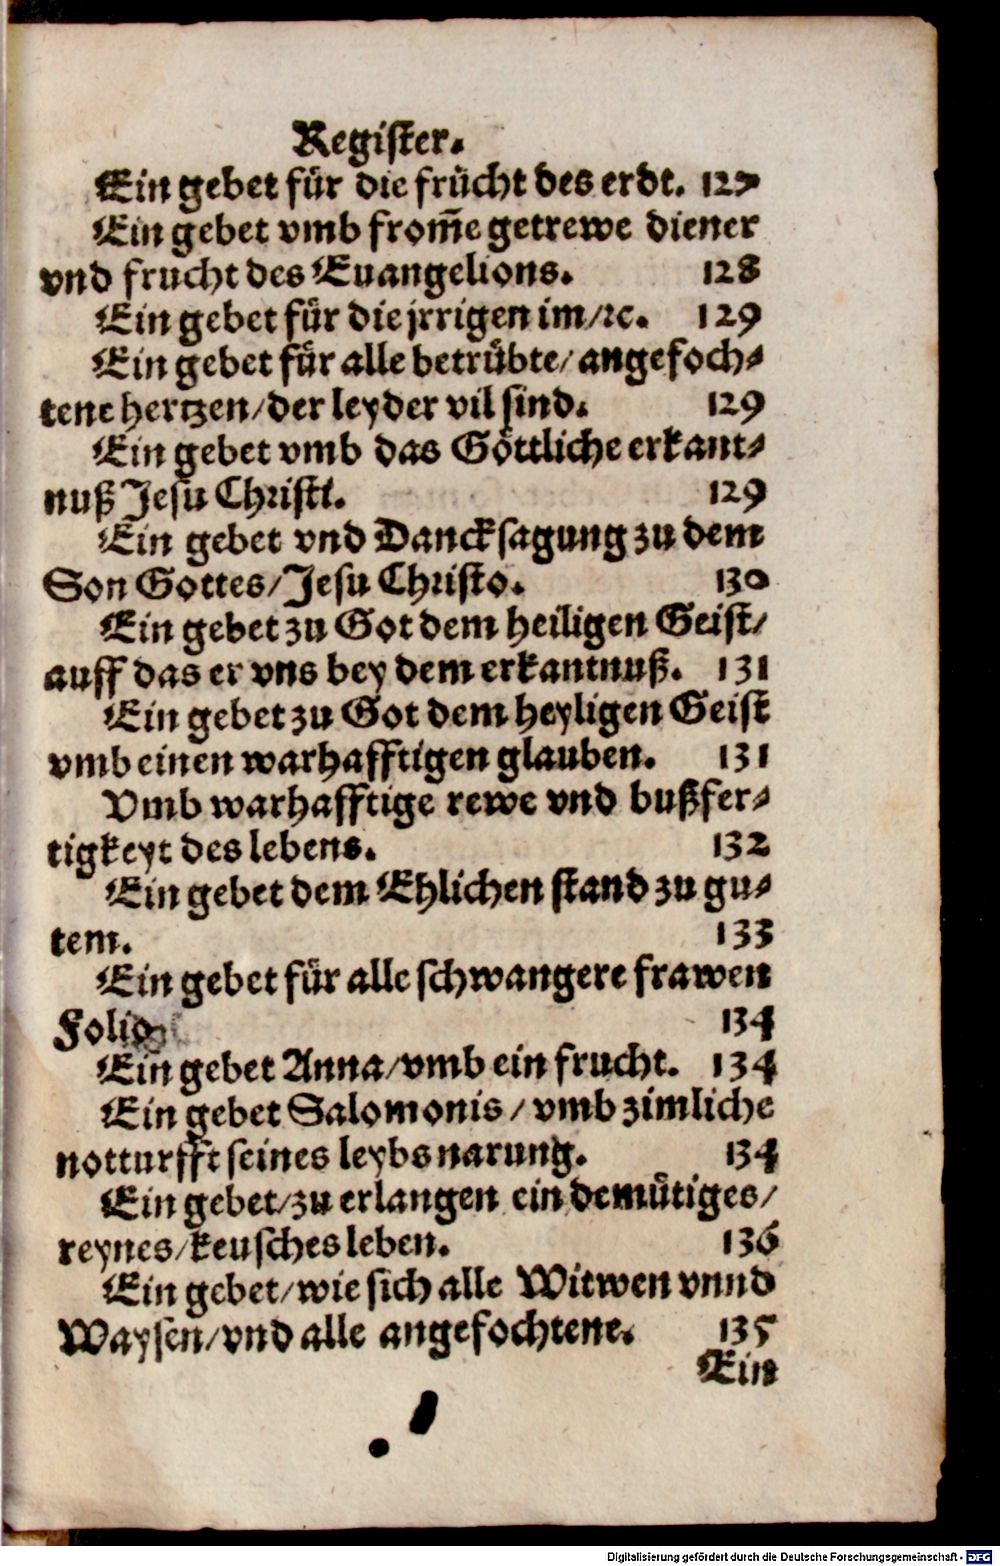 Register.
Ein gebet für die frücht des erdt. 127
Ein gebet vmb from̄e getrewe diener
vnd frucht des Euangelions. 128
Ein gebet für die jrrigen im/ꝛc. 129
Ein gebet für alle betrübte/angefoch⸗
tene hertzen/der leyder vil sind. 129
Ein gebet vmb das Göttliche erkant⸗
nuß Jesu Christi. 129
Ein gebet vnd Dancksagung zu dem
Son Gottes/Jesu Christo. 130
Ein gebet zu Got dem heiligen Geist/
auff das er vns bey dem erkantnuß. 131
Ein gebet zu Got dem heyligen Geist
vmb einen warhafftigen glauben. 131
Vmb warhafftige rewe vnd bußfer⸗
tigkeyt des lebens. 132
Ein gebet dem Ehlichen stand zu gu⸗
tem. 133
Ein gebet für alle schwangere frawen
Folio 134
Ein gebet Anna/vmb ein frucht. 134
Ein gebet Salomonis/vmb zimliche
notturfft seines leybs narung. 134
Ein gebet/zu erlangen ein demütiges/
reynes/keusches leben. 136
Ein gebet/wie sich alle Witwen vnnd
Waysen/vnd alle angefochtene. 135
Ein
Digitalisierung gefördert durch die Deutsche Forschungsgemeinschaft - DFG